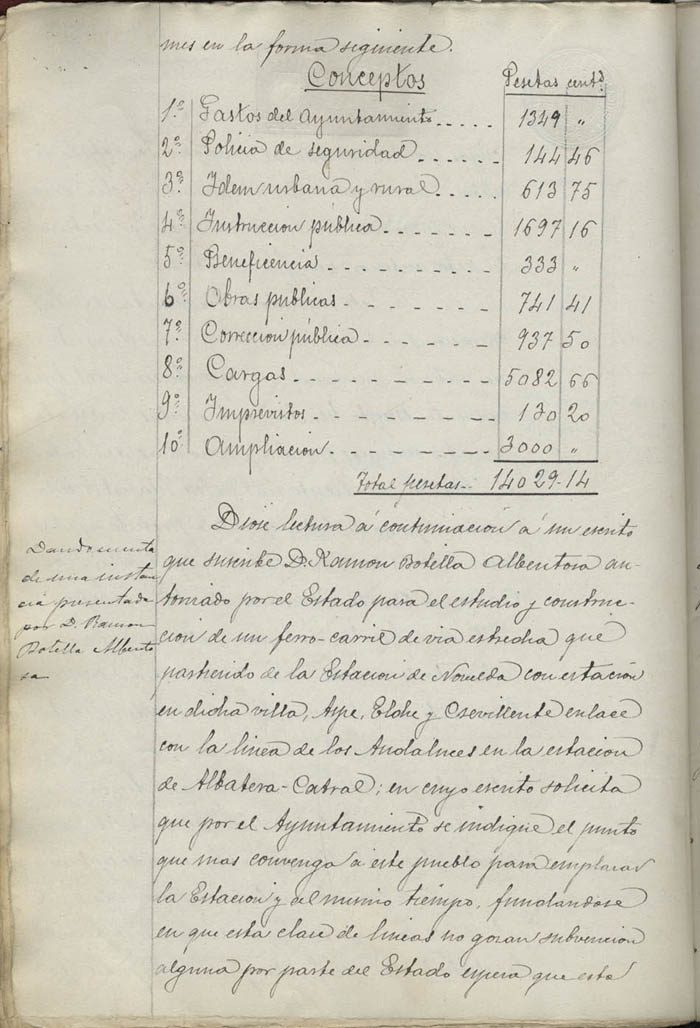 mes en la forma siguiente.
Conceptos Pesetas cents.
1.º Gastos del Ayuntamiento..... 1349 "
2.º Policia de seguridad...... 144 46
3.º Idem urbana y rural..... 613 75
4.º Instruccion pública....... 1697 16
5.º Beneficencia......... 333 "
6.º Obras publicas....... 741 41
7.º Correccion pública....... 937 50
8.º Cargas......... 5082 66
9.º Imprevistos........ 130 20
10.º Ampliacion........ 3000 "
Total pesetas.. 14029-14
Diose lectura á continuacion á un escrito
que suscribe D. Ramon Botella Albentosa au-
torizado por el Estado para el estudio y construc-
cion de un ferro-carril de via estrecha que
partiendo de la Estacion de Novelda con estación
en dicha villa, Aspe, Elche y Crevillente enlace
con la linea de los Andaluces en la estacion
de Albatera-Catral; en cuyo escrito solicita
que por el Ayuntamiento se indique el punto
que mas convenga á este pueblo para emplazar
la Estacion y al mismo tiempo, fundandose
en que esta clase de lineas no gozan subvencion
alguna por parte del Estado espera que esta
Dando cuenta
de una instan
cia presentada
por D. Ramon
Botella Albento
sa